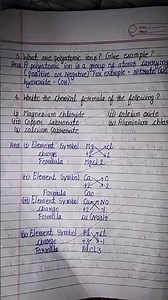 3. What are polyatomic ions? Give example?
Ans A polyatomic ion is a group of atoms carrying
(positive or Negative) For example - Nitrate
hydroxide - (OH)
4. Write the chemical formula of the following?
(i) Magnesium chloride (ii) calcium oxide
(iii) Copper carbonate (iv) Aluminium
(v) calcium carbonate
Ans (i) Element Symbol Mg Cl
charge +2 -1
Formula MgCl2
(ii) Element Symbol Ca O
charge +2 -2
Formula CaO
(iii) Element Symbol Cu NO3
charge +2 -1
Formula
(iv) Element Symbol Al Cl
charge +3 -1
Formula AlCl3